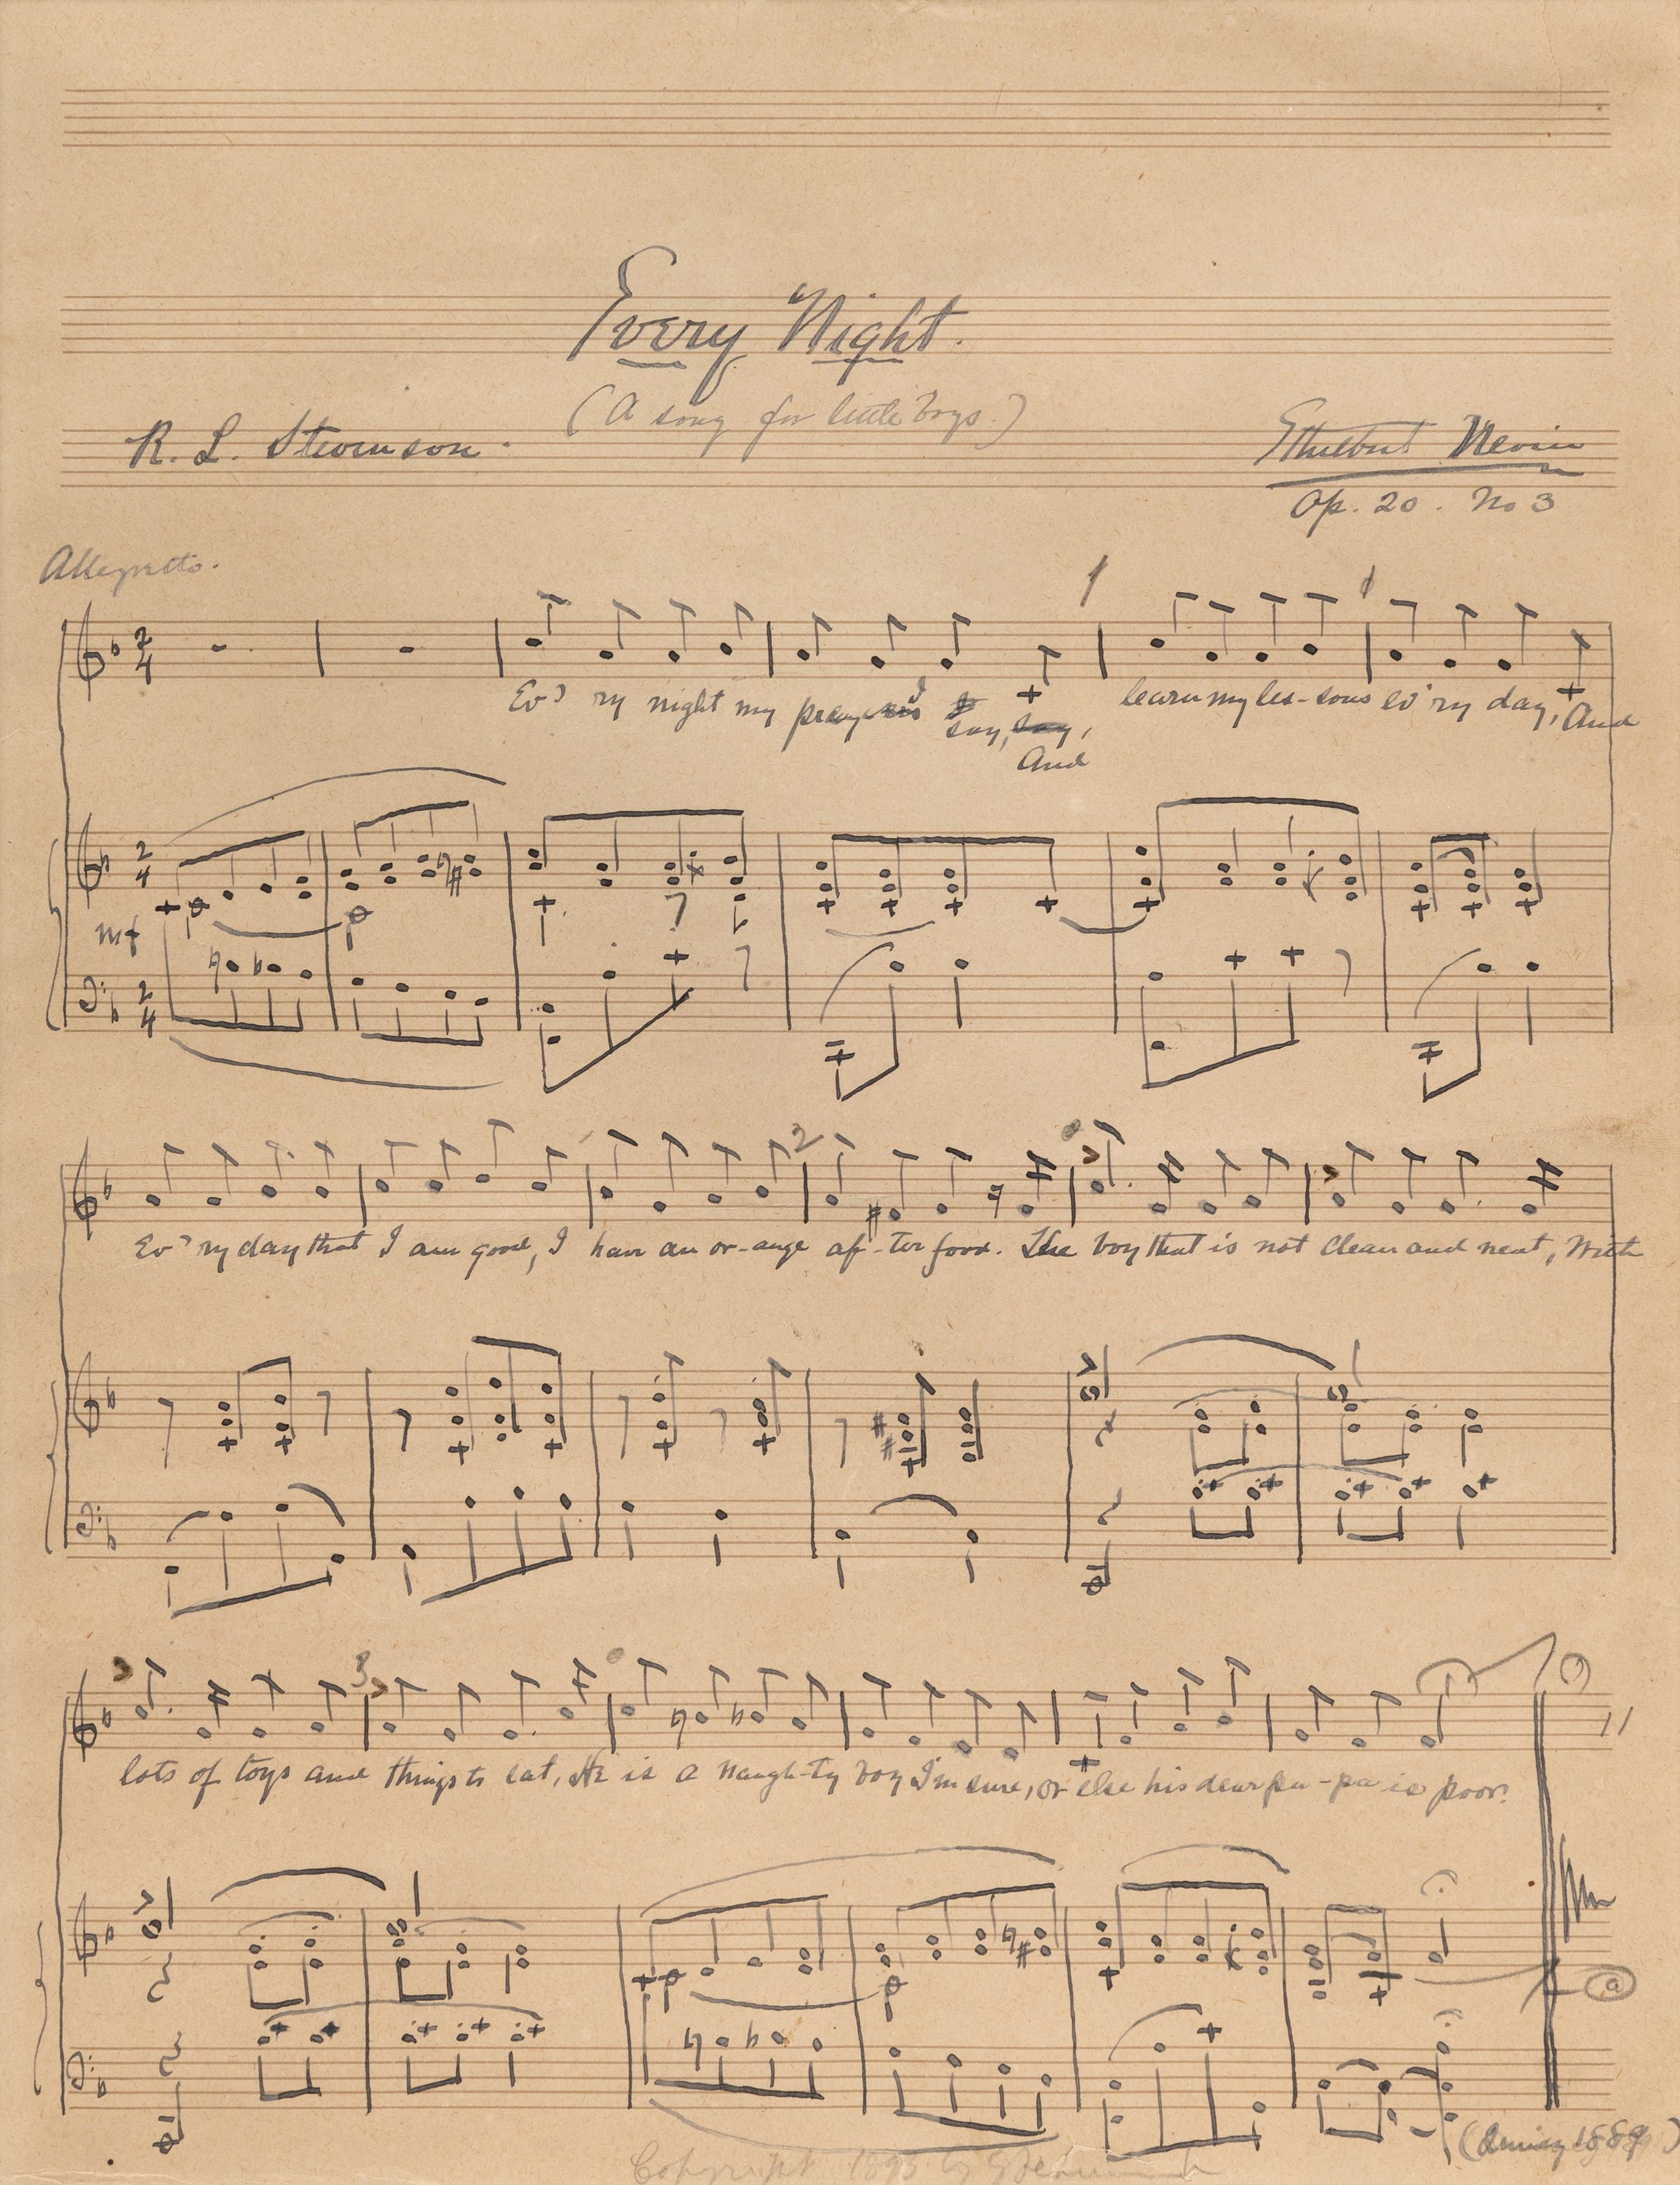 Every Night.
(A song for little boys.)
R. L. Stevenson.
Ethelbert Nevin
Op. 20. No 3
Allegretto.
1
Ev' ry night my prayers I say, say, learn my les-sons ev' ry day, And
And
mf
2
Ev' ry day that I am good, I have an or-ange af-ter food. The boy that is not clean and neat, With
3
lots of toys and things to eat, He is a naugh-ty boy I'm sure, or else his dear pa-pa is poor.
a
1889)
Copyright 1895 by G Schirmer